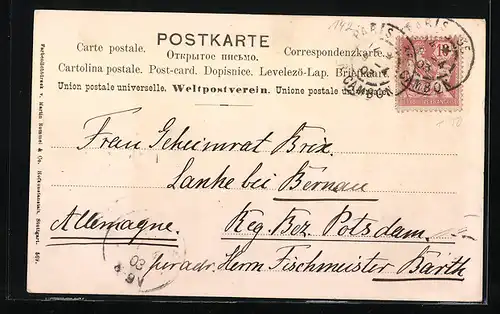 142
POSTKARTE
Carte postale. Открытое письмо. Correspondenzkarte.
Cartolina postale. Post-card. Dopisnice. Levelező-Lap. Briefkaart.
Union postale universelle. Weltpostverein. Unione postale universale.
PARIS
CAMBON
PARIS
CAMBON
03
Frau Geheimrat Brix.
Lanke bei Bernau
Allemagne. Reg. Bez. Potsdam.
per adr. Herrn Fischmeister Barth
03
Farbenlichtdruck v. Martin Rommel & Co. Hofkunstanstalt, Stuttgart. 502.